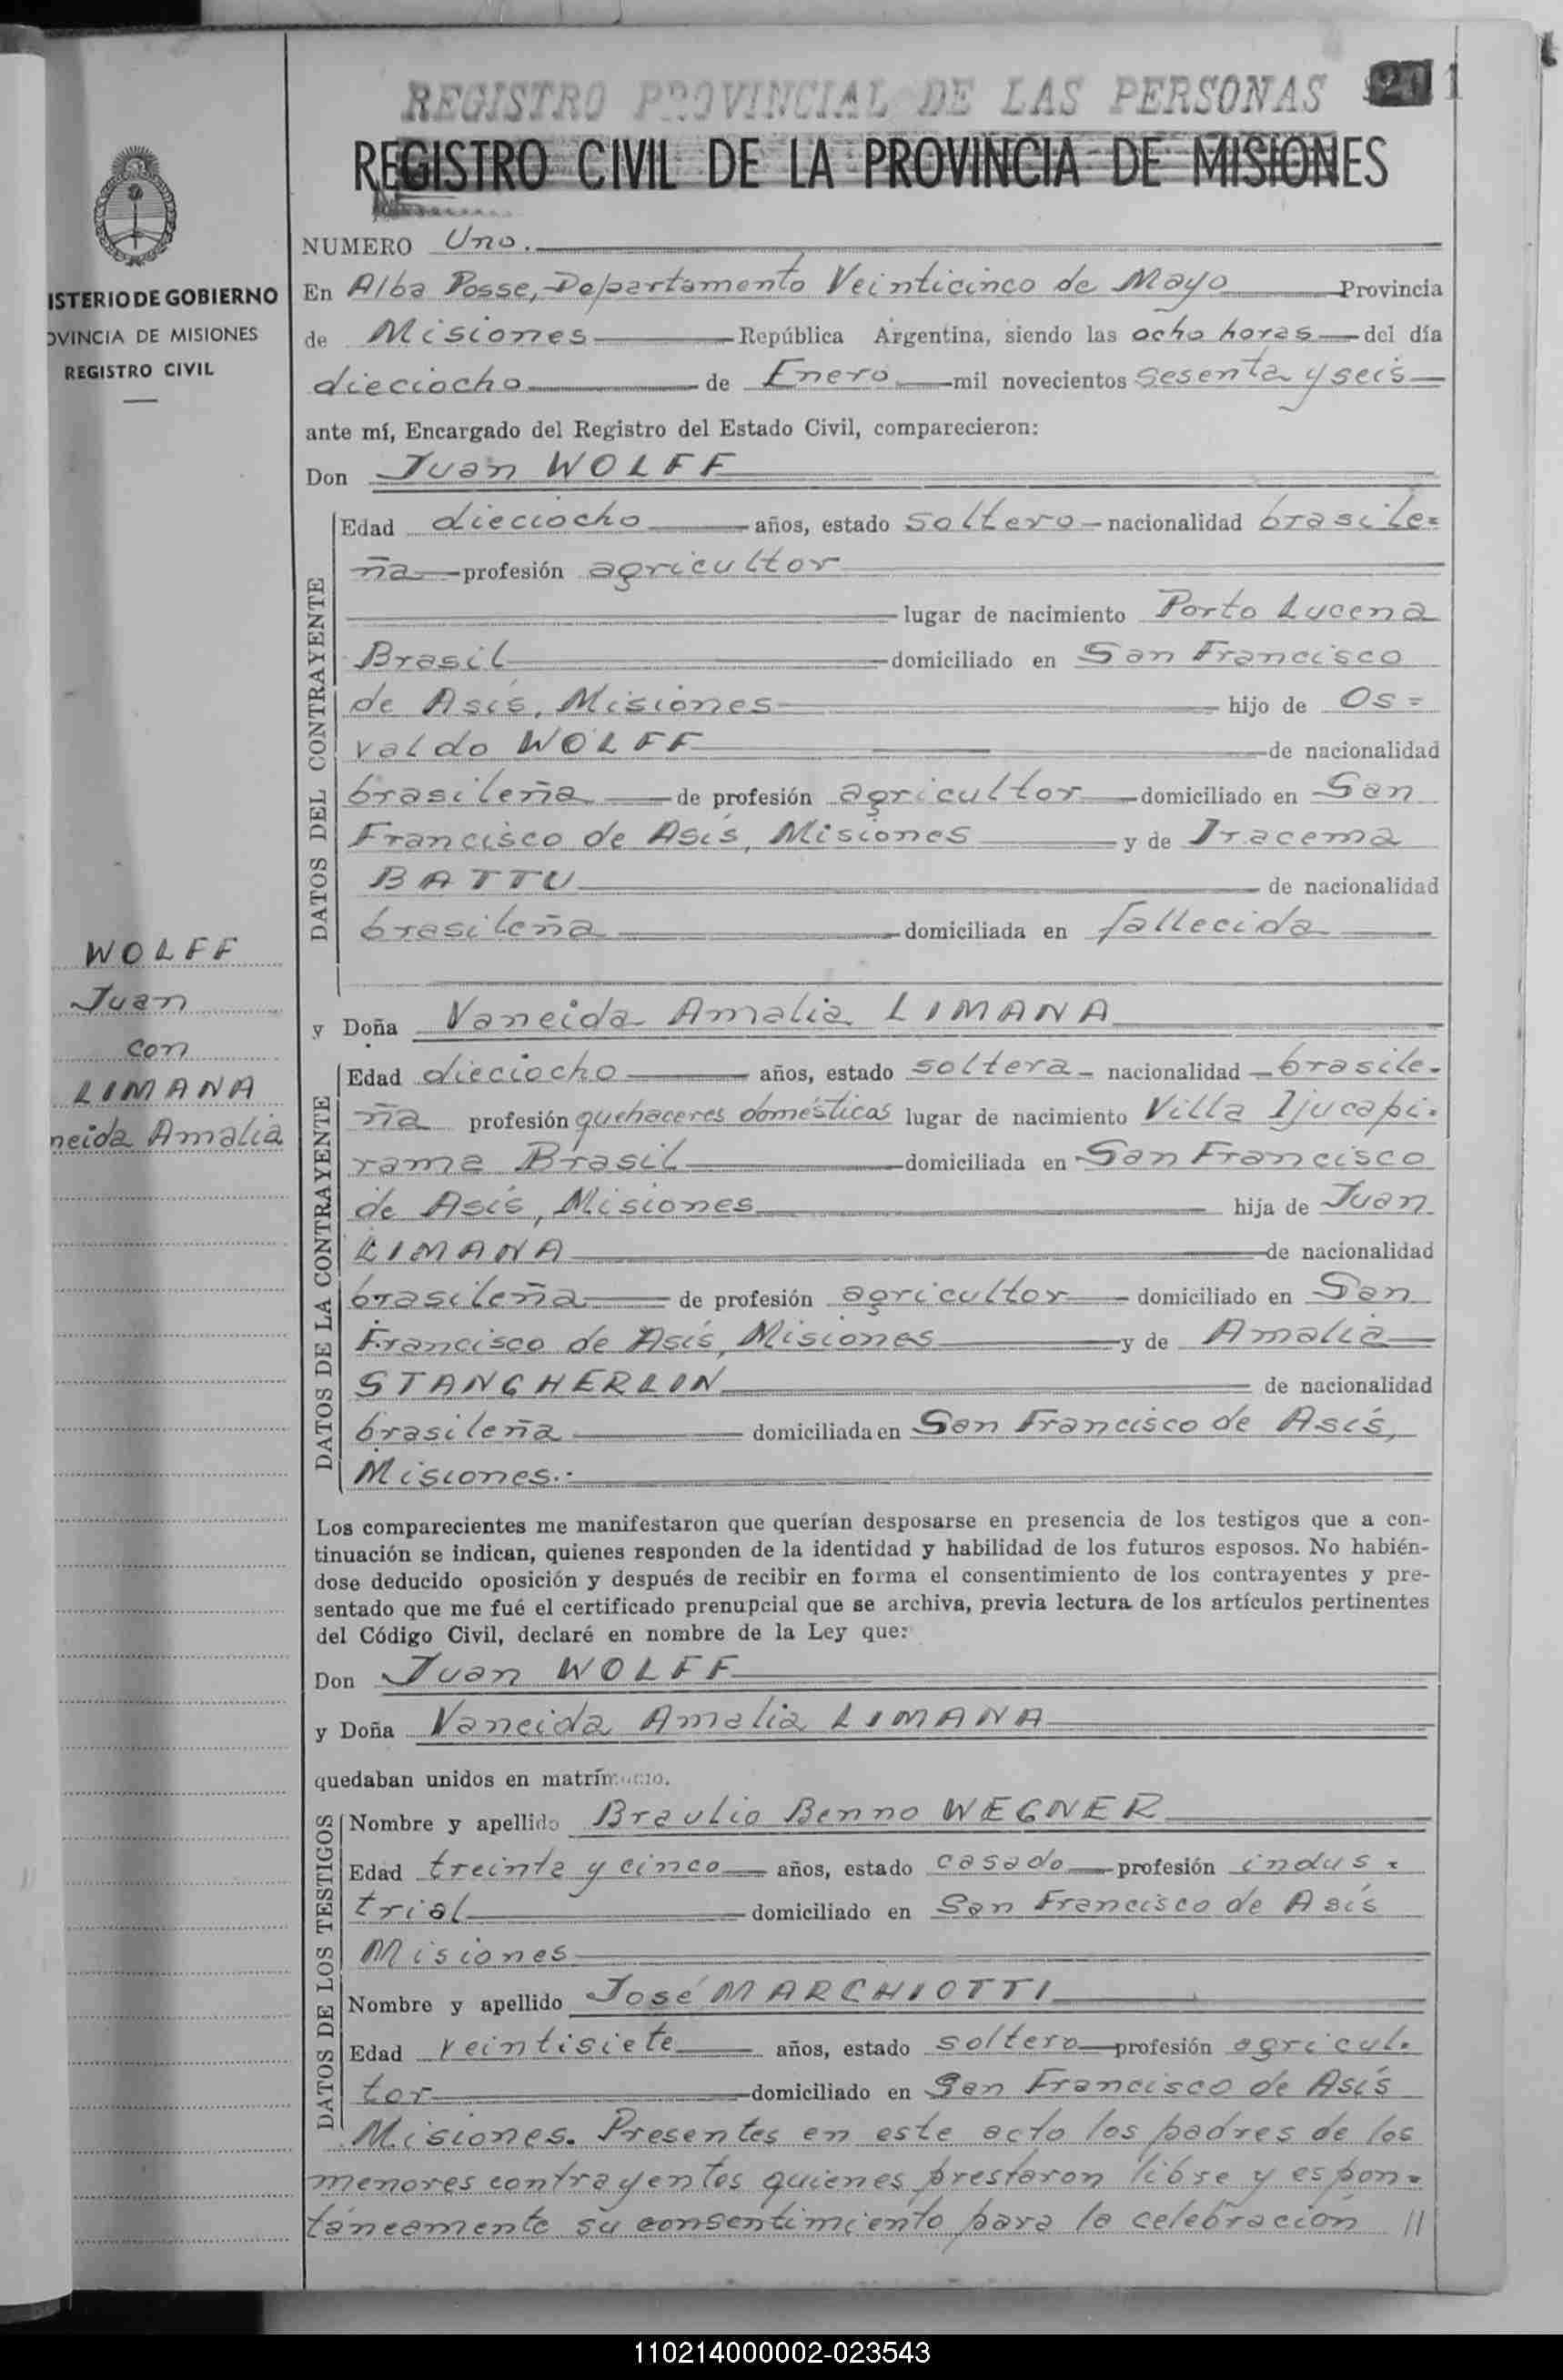 REGISTRO PROVINCIAL DE LAS PERSONAS
1
REGISTRO CIVIL DE LA PROVINCIA DE MISIONES
ISTERIO DE GOBIERNO
OVINCIA DE MISIONES
REGISTRO CIVIL
NUMERO Uno.
En Alba Posse, Departamento Veinticinco de Mayo Provincia
de Misiones República Argentina, siendo las ocho horas del día
dieciocho de Enero mil novecientos sesenta y seis
ante mí, Encargado del Registro del Estado Civil, comparecieron:
Don Juan WOLFF
DATOS DEL CONTRAYENTE
Edad dieciocho años, estado soltero nacionalidad brasile=
ña profesión agricultor
lugar de nacimiento Porto Lucena
Brasil domiciliado en San Francisco
de Asís, Misiones hijo de Os=
valdo WOLFF de nacionalidad
brasileña de profesión agricultor domiciliado en San
Francisco de Asís, Misiones y de Iracema
BATTU de nacionalidad
brasileña domiciliada en fallecida
WOLFF
Juan
con
LIMANA
neida Amalia
y Doña Vaneida Amalia LIMANA
DATOS DE LA CONTRAYENTE
Edad dieciocho años, estado soltera nacionalidad brasile-
ña profesión quehaceres domésticos lugar de nacimiento Villa Ijucapi-
rama Brasil domiciliada en San Francisco
de Asís, Misiones hija de Juan
LIMANA de nacionalidad
brasileña de profesión agricultor domiciliado en San
Francisco de Asís, Misiones y de Amalia
STANGHERLIN de nacionalidad
brasileña domiciliada en San Francisco de Asís,
Misiones.-
Los comparecientes me manifestaron que querían desposarse en presencia de los testigos que a con-
tinuación se indican, quienes responden de la identidad y habilidad de los futuros esposos. No habién-
dose deducido oposición y después de recibir en forma el consentimiento de los contrayentes y pre-
sentado que me fué el certificado prenupcial que se archiva, previa lectura de los artículos pertinentes
del Código Civil, declaré en nombre de la Ley que:
Don Juan WOLFF
y Doña Vaneida Amalia LIMANA
quedaban unidos en matrimonio.
DATOS DE LOS TESTIGOS
Nombre y apellido Braulio Benno WEGNER
Edad treinta y cinco años, estado casado profesión indus=
trial domiciliado en San Francisco de Asís
Misiones
Nombre y apellido José MARCHIOTTI
Edad veintisiete años, estado soltero profesión agricul-
tor domiciliado en San Francisco de Asís
Misiones. Presentes en este acto los padres de los
menores contrayentes quienes prestaron libre y espon=
táneamente su consentimiento para la celebración //
110214000002-023543